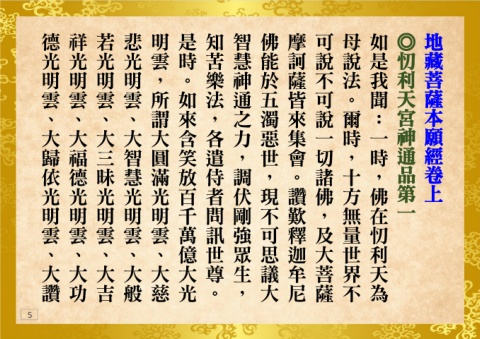 地藏菩薩本願經卷上
◎忉利天宮神通品第一
如是我聞：一時，佛在忉利天為
母說法。爾時，十方無量世界不
可說不可說一切諸佛，及大菩薩
摩訶薩皆來集會。讚歎釋迦牟尼
佛能於五濁惡世，現不可思議大
智慧神通之力，調伏剛強眾生，
知苦樂法，各遣侍者問訊世尊。
是時。如來含笑放百千萬億大光
明雲，所謂大圓滿光明雲、大慈
悲光明雲、大智慧光明雲、大般
若光明雲、大三昧光明雲、大吉
祥光明雲、大福德光明雲、大功
德光明雲、大歸依光明雲、大讚
5